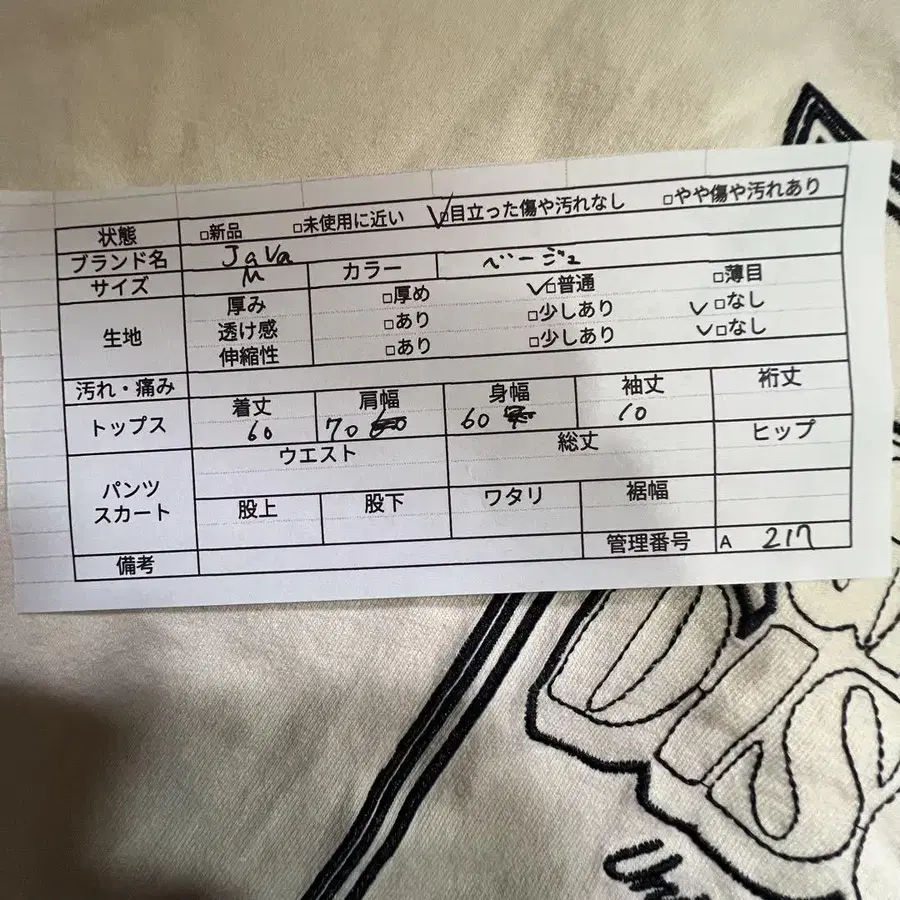 状態 □新品 □未使用に近い ✓□目立った傷や汚れなし □やや傷や汚れあり
ブランド名 JaVa
サイズ M カラー ベージュ
生地 厚み □厚め ✓□普通 □薄目
透け感 □あり □少しあり ✓□なし
伸縮性 □あり □少しあり ✓□なし
汚れ・痛み
トップス 着丈 肩幅 身幅 袖丈 裄丈
60 70 60 10
パンツ スカート ウエスト 総丈 ヒップ
股上 股下 ワタリ 裾幅
備考 管理番号 A 217